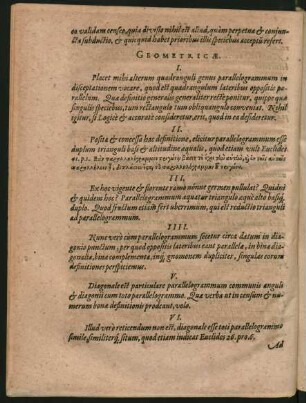 eo validam censeo, quia divisio nihil est aliud, quàm perpetua & conjuncta
subductio, & quic quid habet prioribus illis speciebus acceptū refert.
GEOMETRICÆ.
I.
Placet mihi alterum quadranguli genus parallelogrammum in
disceptationem vocare, quod est quadrangulum lateribus oppositis parallelum.
Quæ definitio generalis generaliter rectè ponitur, quippe quæ
singulis speciebus, tum rectangulis tum obliquangulis conveniat. Nihil
igitur, si Logicè & accuratè considerātur, erit, quod in ea desideretur.
II.
Posita & concessa hac definitione, elicitur parallelogrammum esse
duplum trianguli basi & altitudine æqualis, quod etiam vult Euclides
III.
Ex hoc vigente & florente ramo nónne germen pullulat? Quidni
& quidem hoc? Parallelogrammum æquatur triangulo æquè alto basis
duplæ. Quod fructum etiam fert uberrimum, qui est reductio trianguli
ad parallelogrammum.
IIII.
Nunc verò cùm parallelogrammum secetur circa datum in diagonio
punctum, per quod oppositis lateribus eant parallela, in bina diagonalia,
bina complementa, inq; gnomonem duplicem, singulas eorum
definitiones perspiciemus.
V.
Diagonale est particulare parallelogrammum communis anguli
& diagonii cum toto parallelogrammo. Quæ verba ut in censum & numerum
bonæ definitionis prodeant, volo.
VI.
Illud verò reticendum non est, diagonale esse toti parallelogrammo
simile, similiterq; situm, quod etiam indicat Euclides 26. pro. 6.
Ad